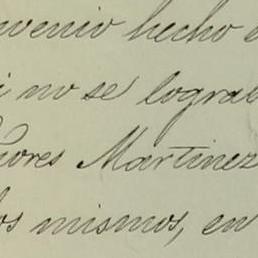 nvenio hecho e
i no se lograb
ñores Martinez
los mismos, en